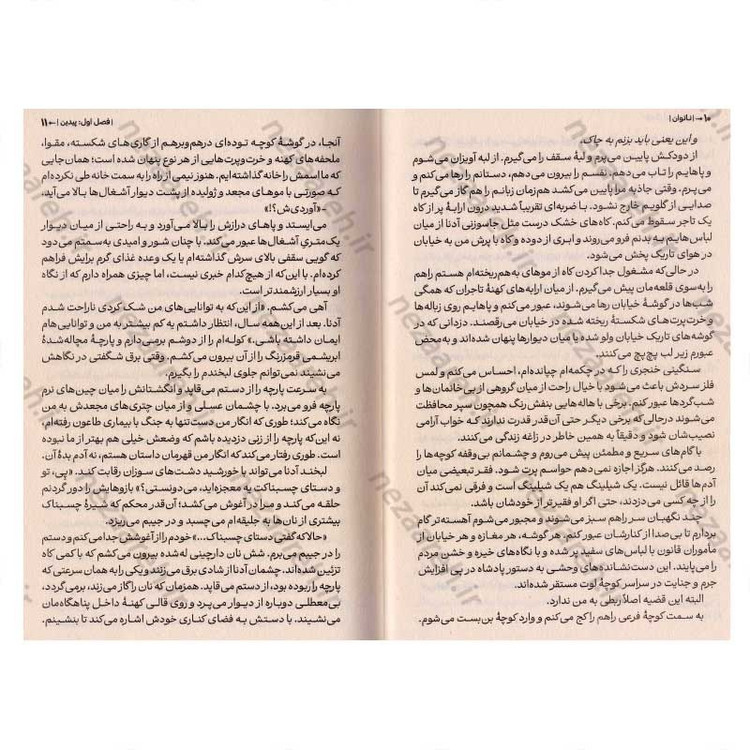 ۱۰ → | ناتوان |
و این یعنی باید بزنم به چاک.
از دودکش پایین می‌پرم و لبهٔ سقف را می‌گیرم. از لبه آویزان می‌شوم
و پاهایم را تاب می‌دهم. نفسم را بیرون می‌دهم، دستانم را رها می‌کنم و
می‌پرم. وقتی جاذبه مرا پایین می‌کشد هم‌زمان زبانم را هم گاز می‌گیرم تا
صدایی از گلویم خارج نشود. با ضربه‌ای تقریباً شدید درون ارابهٔ پر از کاه
یک تاجر سقوط می‌کنم. کاه‌های خشک درست مثل جاسوزنی آدنا از میان
لباس‌هایم به بدنم فرو می‌روند و ابری از دوده و کاه با پرش من به خیابان
در هوای تاریک پخش می‌شود.
در حالی‌که مشغول جدا کردن کاه از موهای به‌هم‌ریخته‌ام هستم راهم
را به‌سوی قلعه‌مان پیش می‌گیرم. از میان ارابه‌های کهنهٔ تاجران که همگی
شب‌ها در گوشهٔ خیابان رها می‌شوند، عبور می‌کنم و پاهایم روی زباله‌ها
و خرت‌پرت‌های شکستهٔ ریخته شده در خیابان می‌رقصند. دزدانی که در
گوشه‌های تاریک خیابان ولو شده یا میان دیوارها پنهان شده‌اند و به‌محض
عبورم زیر لب پچ‌پچ می‌کنند.
سنگینی خنجری را که در چکمه‌ام چپانده‌ام، احساس می‌کنم و لمس
فلز سردش باعث می‌شود با خیال راحت از میان گروهی از بی‌خانمان‌ها و
شب‌گردها عبور کنم. برخی با هاله‌هایی بنفش‌رنگ همچون سپر محافظت
می‌شوند درحالی‌که برخی دیگر حتی آن‌قدر قدرت ندارند که خواب آرامی
نصیب‌شان شود و دقیقاً به همین خاطر در زاغه زندگی می‌کنند.
با گام‌های سریع و مطمئن پیش می‌روم و چشمانم بی‌وقفه کوچه‌ها را
رصد می‌کنند. هرگز اجازه نمی‌دهم حواسم پرت شود. فقر تبعیضی میان
آدم‌ها قائل نیست. یک شیلینگ هم یک شیلینگ است و فرقی نمی‌کند آن
را از چه کسی می‌دزدند، حتی اگر او فقیرتر از خودشان باشد.
چند نگهبان سر راهم سبز می‌شوند و مجبور می‌شوم آهسته‌تر گام
بردارم تا بی‌صدا از کنارشان عبور کنم. هر گوشه، هر مغازه و هر خیابان از
مأموران قانون با لباس‌های سفید پر شده و با نگاه‌های خیره و خشن مردم
را می‌پایند. این دست‌نشانده‌های وحشی به دستور پادشاه در پی افزایش
جرم و جنایت در سراسر کوچهٔ لوت مستقر شده‌اند.
البته این قضیه اصلاً ربطی به من ندارد.
به سمت کوچهٔ فرعی راهم را کج می‌کنم و وارد کوچهٔ بن‌بست می‌شوم.
| فصل اول: پیدین | ← ۱۱
آنجا، در گوشهٔ کوچه توده‌ای درهم‌وبرهم از گاری‌های شکسته، مقوا،
ملحفه‌های کهنه و خرت‌وپرت‌هایی از هر نوع پنهان شده است؛ همان‌جایی
که ما اسمش را خانه گذاشته‌ایم. هنوز نیمی از راه را به سمت خانه طی نکرده‌ام
که صورتی با موهای مجعد و ژولیده از پشت دیوار آشغال‌ها بالا می‌آید.
- «آوردی‌ش؟!»
می‌ایستد و پاهای درازش را بالا می‌آورد و به راحتی از میان دیوار
یک متریِ آشغال‌ها عبور می‌کند. با چنان شور و امیدی به‌سمتم می‌دود
که گویی سقفی بالای سرش گذاشته‌ام یا یک وعده غذای گرم برایش فراهم
کرده‌ام. با این‌که از هیچ‌کدام خبری نیست، اما چیزی همراه دارم که از نگاه
او بسیار ارزشمندتر است.
آهی می‌کشم. «از این‌که به توانایی‌های من شک کردی ناراحت شدم
آدنا. بعد از این‌همه سال، انتظار داشتم یه کم بیشتر به من و توانایی‌هام
ایمان داشته باشی.» کوله‌ام را از دوشم برمی‌دارم و پارچهٔ مچاله‌شدهٔ
ابریشمی قرمزرنگ را از آن بیرون می‌کشم. وقتی برق شگفتی در نگاهش
می‌نشیند نمی‌توانم جلوی لبخندم را بگیرم.
به سرعت پارچه را از دستم می‌قاپد و انگشتانش را میان چین‌های نرم
پارچه فرو می‌برد. با چشمان عسلی و از میان چتری‌های مجعدش به من
نگاه می‌کند؛ طوری که انگار من دست‌تنها به جنگ با بیماری طاعون رفته‌ام،
نه این‌که پارچه را از زنی دزدیده باشم که وضعش خیلی هم بهتر از ما نبوده
است. طوری رفتار می‌کند که انگار من قهرمان داستان هستم، نه آدم بدهٔ آن.
لبخند آدنا می‌تواند با خورشید دشت‌های سوزان رقابت کند. «پِی، تو
و دستای چسبناکت یه معجزه‌اید، می‌دونستی؟» بازوهایش را دور گردنم
حلقه می‌کند و مرا در آغوش می‌کشد؛ آن‌قدر محکم که شیرهٔ چسبناک
بیشتری از نان‌ها به جلیقه‌ام می‌چسبد و در جیبم می‌ریزد.
«حالا که گفتی دستای چسبناک...» خودم را از آغوشش جدا می‌کنم و دستم
را در جیبم می‌برم. شش نان دارچینی له‌شده بیرون می‌کشم که با کمی کاه
تزئین شده‌اند. چشمان آدنا از شادی برق می‌زنند و یکی را به همان سرعتی که
پارچه را ربوده بود، از دستم می‌قاپد. همزمان که نان را گاز می‌زند، برمی‌گردد،
بی‌معطلی دوباره از دیوار می‌پرد و روی قالی کهنهٔ داخل پناهگاه‌مان
می‌نشیند. با دستش به فضای کناری خودش اشاره می‌کند تا بنشینم.
nezaafeh.ir